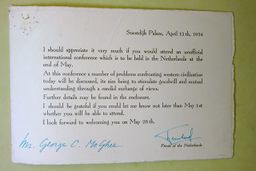 Soestdijk Palace, April 13th, 1954
I should appreciate it very much if you would attend an unofficial
international conference which is to be held in the Netherlands at the
end of May.
At this conference a number of problems confronting western civilization
today will be discussed, its aim being to stimulate goodwill and mutual
understanding through a cordial exchange of views.
Further details may be found in the enclosure.
I should be grateful if you could let me know not later than May 1st
whether you will be able to attend.
I look forward to welcoming you on May 28th.
Mr. George C. McGhee
Prince of the Netherlands